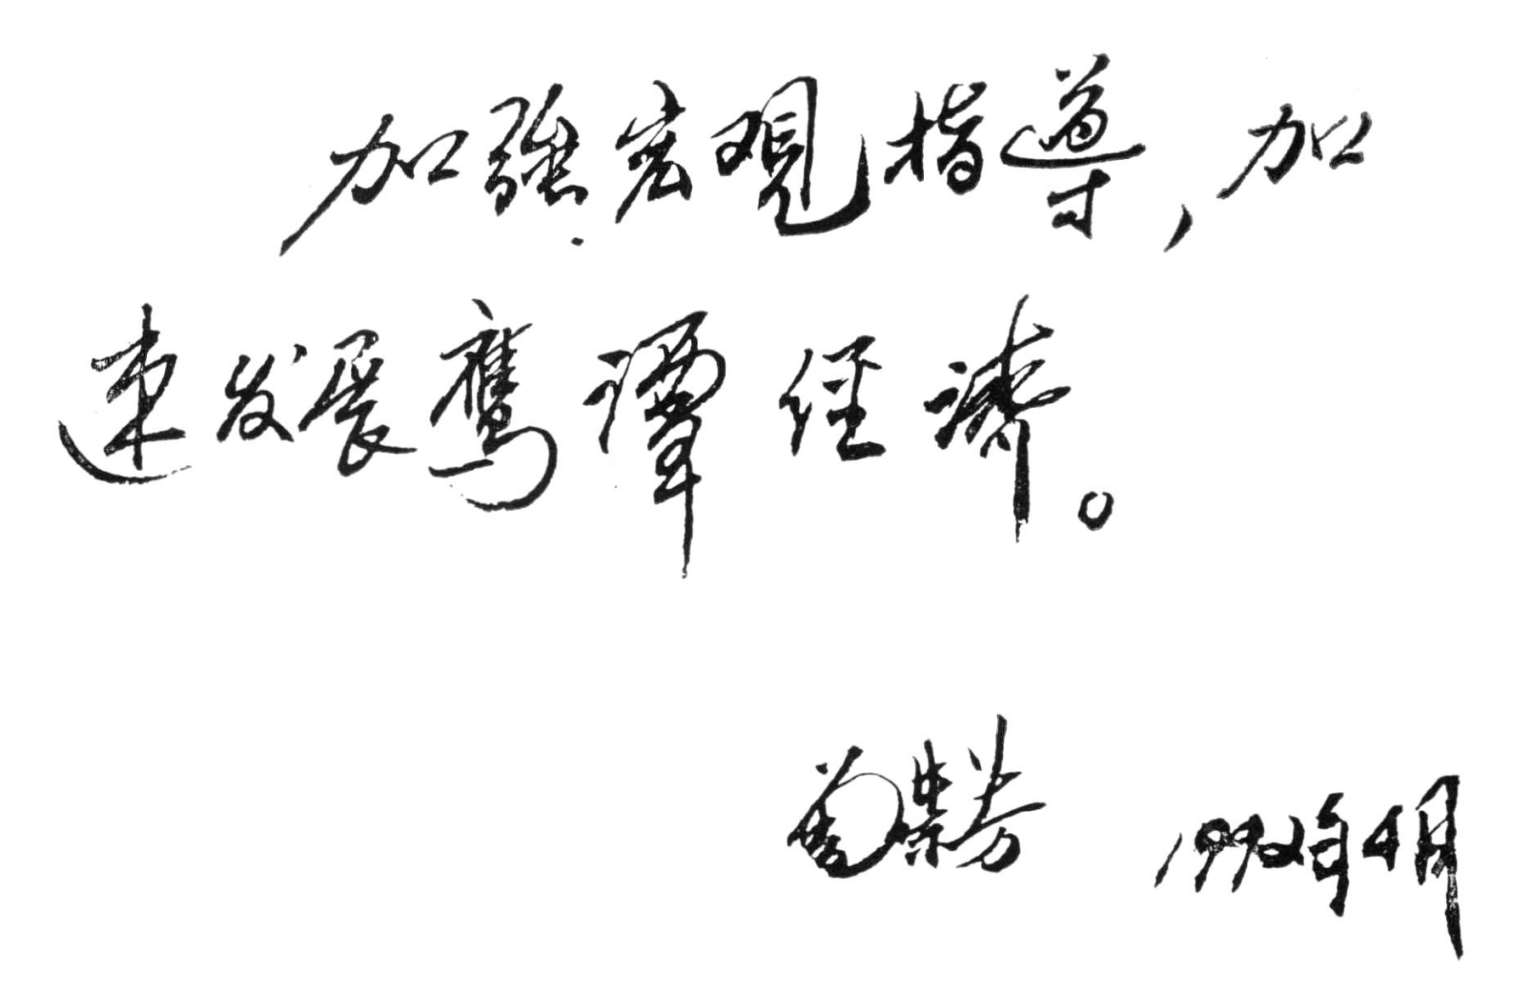 加強宏观指導，加
速发展鹰潭经濟。
1992年4月